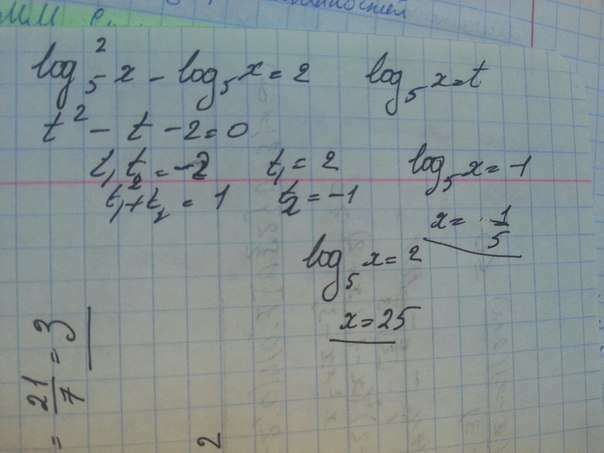 log₅²x - log₅x = 2 log₅x = t
t² - t - 2 = 0
t₁t₂ = -2 t₁ = 2 log₅x = -1
t₁ + t₂ = 1 t₂ = -1 x = 1/5
log₅x = 2
x = 25
= 21/7 = 3
2